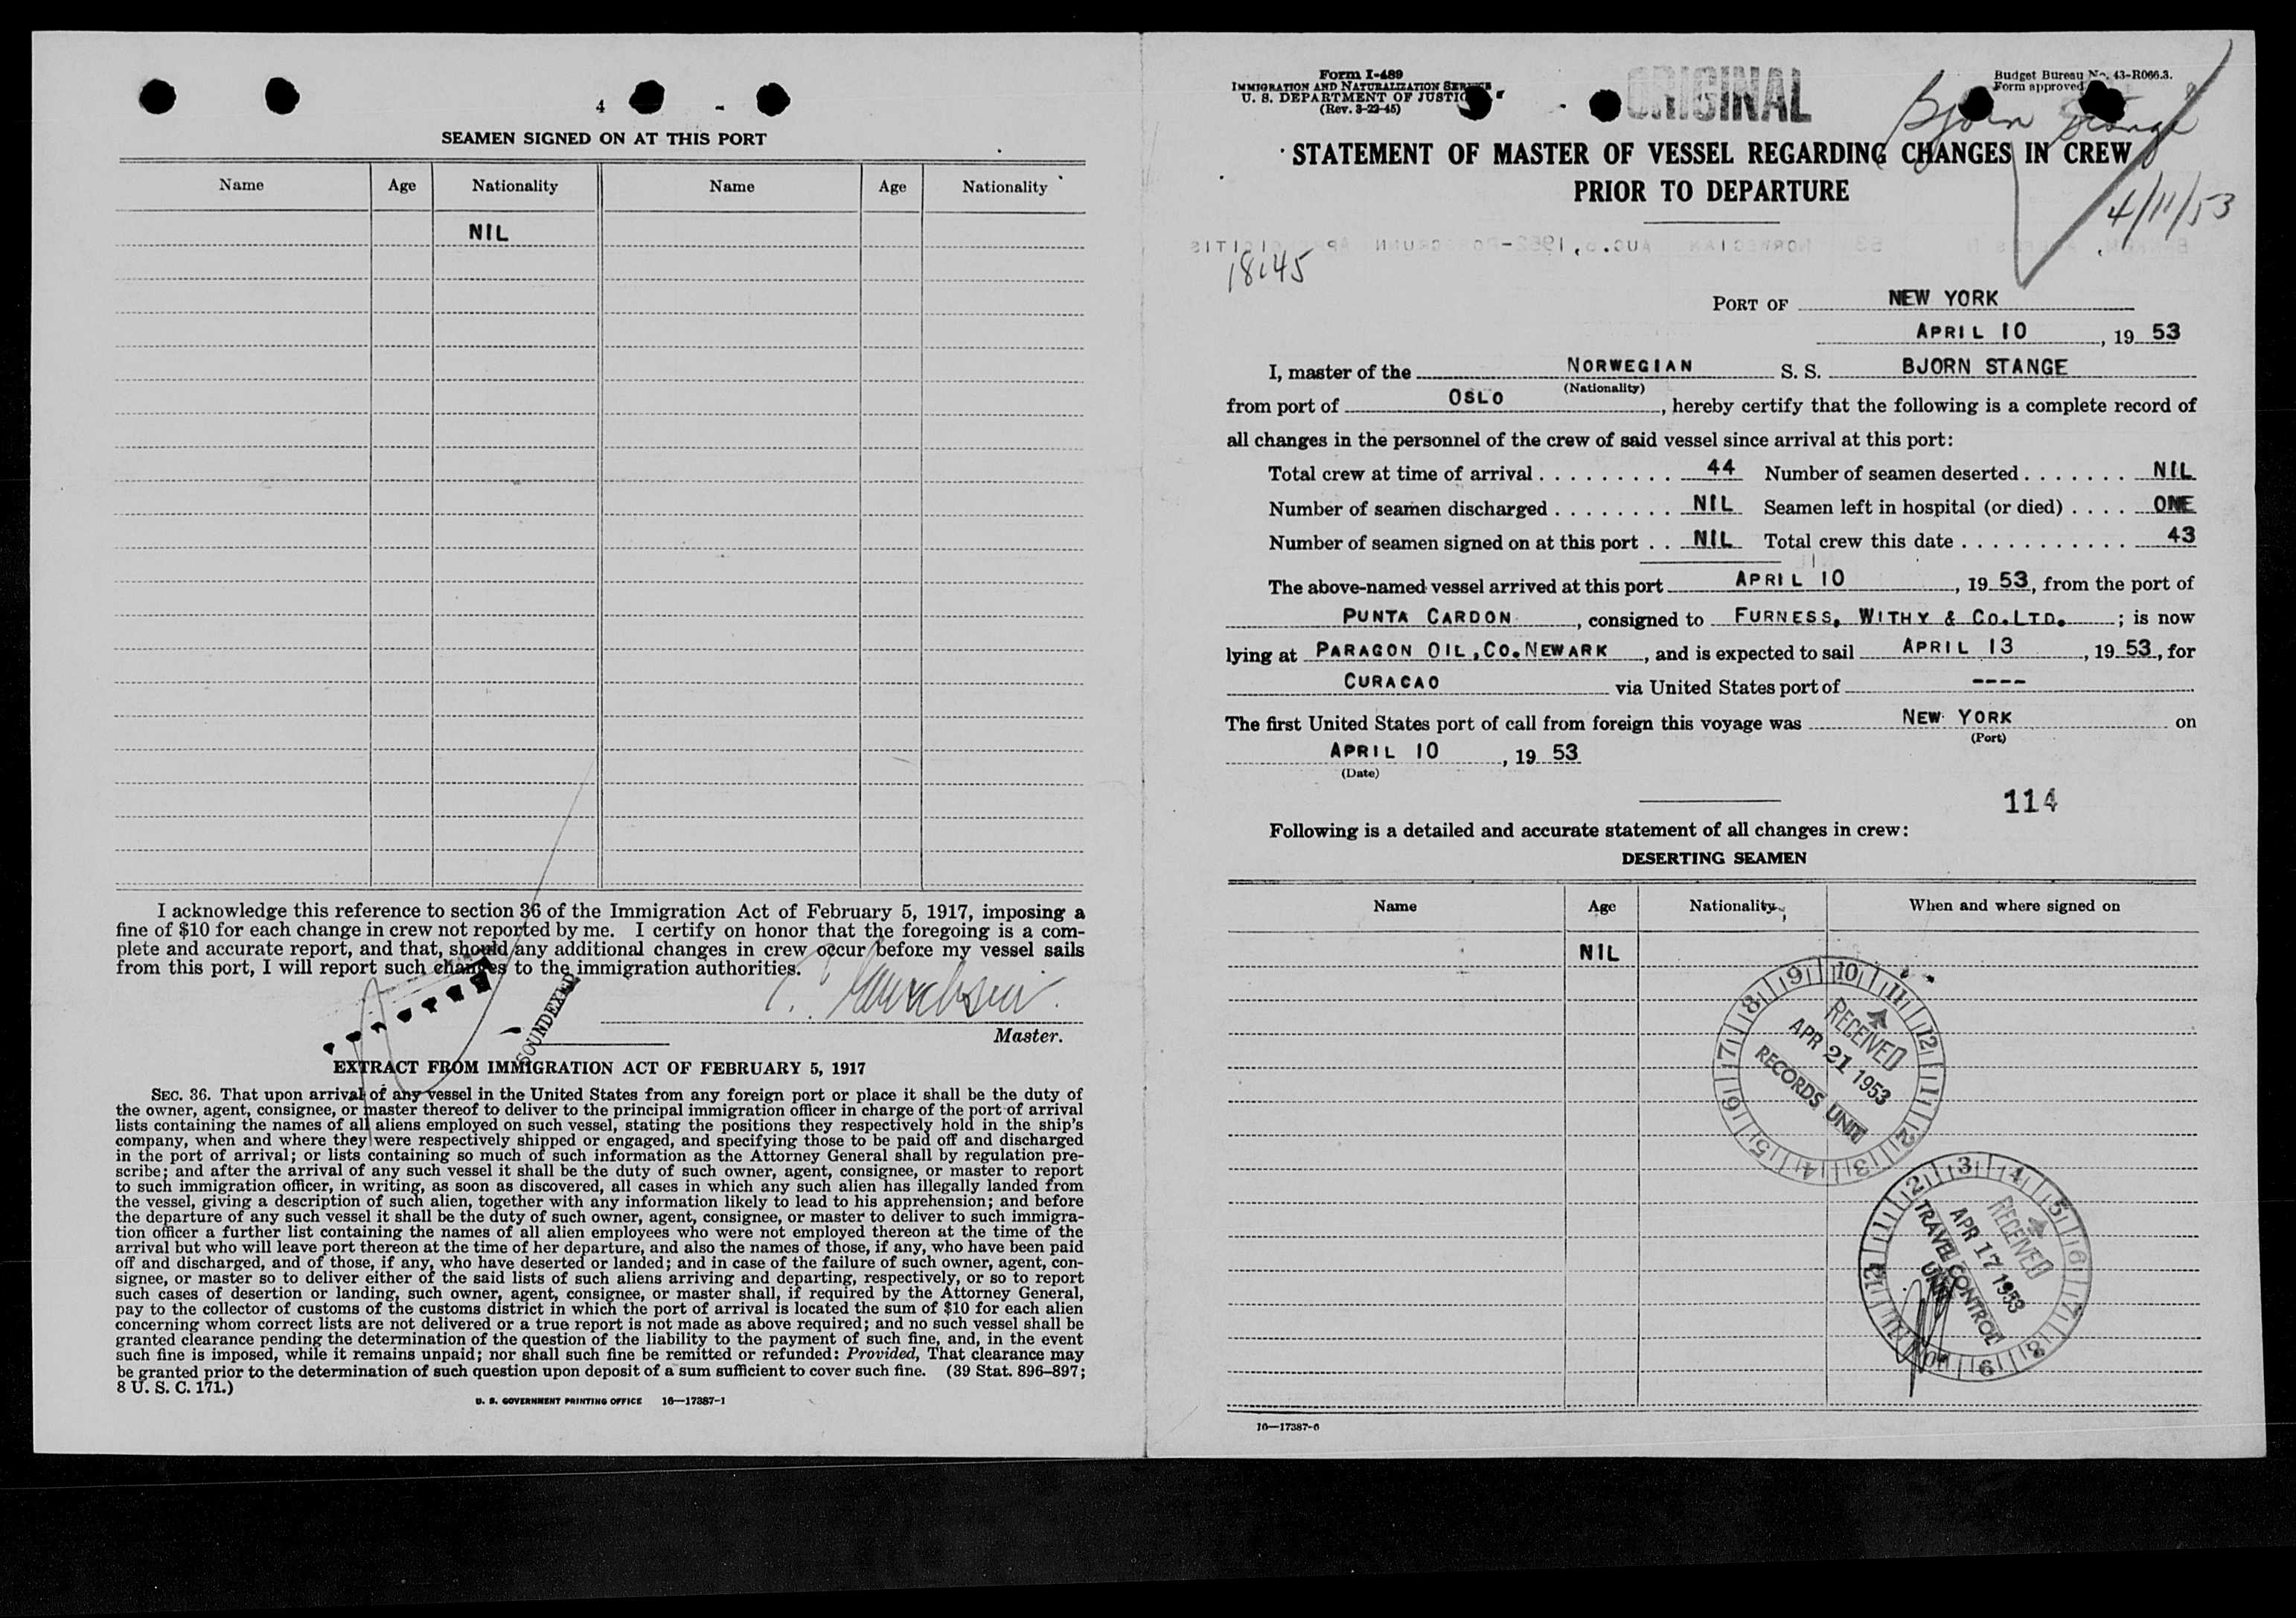 4 -
SEAMEN SIGNED ON AT THIS PORT
Name Age Nationality Name Age Nationality
NIL
I acknowledge this reference to section 36 of the Immigration Act of February 5, 1917, imposing a
fine of $10 for each change in crew not reported by me. I certify on honor that the foregoing is a com-
plete and accurate report, and that, should any additional changes in crew occur before my vessel sails
from this port, I will report such changes to the immigration authorities.
SOUNDEXED
Master.
EXTRACT FROM IMMIGRATION ACT OF FEBRUARY 5, 1917
SEC. 36. That upon arrival of any vessel in the United States from any foreign port or place it shall be the duty of
the owner, agent, consignee, or master thereof to deliver to the principal immigration officer in charge of the port of arrival
lists containing the names of all aliens employed on such vessel, stating the positions they respectively hold in the ship's
company, when and where they were respectively shipped or engaged, and specifying those to be paid off and discharged
in the port of arrival; or lists containing so much of such information as the Attorney General shall by regulation pre-
scribe; and after the arrival of any such vessel it shall be the duty of such owner, agent, consignee, or master to report
to such immigration officer, in writing, as soon as discovered, all cases in which any such alien has illegally landed from
the vessel, giving a description of such alien, together with any information likely to lead to his apprehension; and before
the departure of any such vessel it shall be the duty of such owner, agent, consignee, or master to deliver to such immigra-
tion officer a further list containing the names of all alien employees who were not employed thereon at the time of the
arrival but who will leave port thereon at the time of her departure, and also the names of those, if any, who have been paid
off and discharged, and of those, if any, who have deserted or landed; and in case of the failure of such owner, agent, con-
signee, or master so to deliver either of the said lists of such aliens arriving and departing, respectively, or so to report
such cases of desertion or landing, such owner, agent, consignee, or master shall, if required by the Attorney General,
pay to the collector of customs of the customs district in which the port of arrival is located the sum of $10 for each alien
concerning whom correct lists are not delivered or a true report is not made as above required; and no such vessel shall be
granted clearance pending the determination of the question of the liability to the payment of such fine, and, in the event
such fine is imposed, while it remains unpaid; nor shall such fine be remitted or refunded: Provided, That clearance may
be granted prior to the determination of such question upon deposit of a sum sufficient to cover such fine. (39 Stat. 896–897;
8 U. S. C. 171.)
U. S. GOVERNMENT PRINTING OFFICE 16—17387-1
Form I-489
IMMIGRATION AND NATURALIZATION SERVICE
U. S. DEPARTMENT OF JUSTICE
(Rev. 3-22-45)
ORIGINAL
Budget Bureau No. 43-R066.3.
Form approved
Bjorn Stange
STATEMENT OF MASTER OF VESSEL REGARDING CHANGES IN CREW
PRIOR TO DEPARTURE
4/11/53
18:45
PORT OF NEW YORK
APRIL 10, 19 53
I, master of the NORWEGIAN S. S. BJORN STANGE
(Nationality)
from port of OSLO, hereby certify that the following is a complete record of
all changes in the personnel of the crew of said vessel since arrival at this port:
Total crew at time of arrival . . . . . . . . . 44 Number of seamen deserted . . . . . . . NIL
Number of seamen discharged . . . . . . . . NIL Seamen left in hospital (or died) . . . . ONE
Number of seamen signed on at this port . . NIL Total crew this date . . . . . . . . . . . 43
The above-named vessel arrived at this port APRIL 10, 19 53, from the port of
PUNTA CARDON, consigned to FURNESS, WITHY & CO.LTD.; is now
lying at PARAGON OIL,CO.NEWARK, and is expected to sail APRIL 13, 19 53, for
CURACAO via United States port of ----
The first United States port of call from foreign this voyage was NEW YORK on
(Port)
APRIL 10, 19 53
(Date)
114
Following is a detailed and accurate statement of all changes in crew:
DESERTING SEAMEN
Name Age Nationality When and where signed on
NIL
9 10 11 12 1 2 3 4 5 6 7 8
RECEIVED
APR 21 1953
RECORDS UNIT
1 2 3 4 5 6 7 8 9 10 11 12
RECEIVED
APR 17 1953
TRAVEL CONTROL
UNIT
16—17387-6